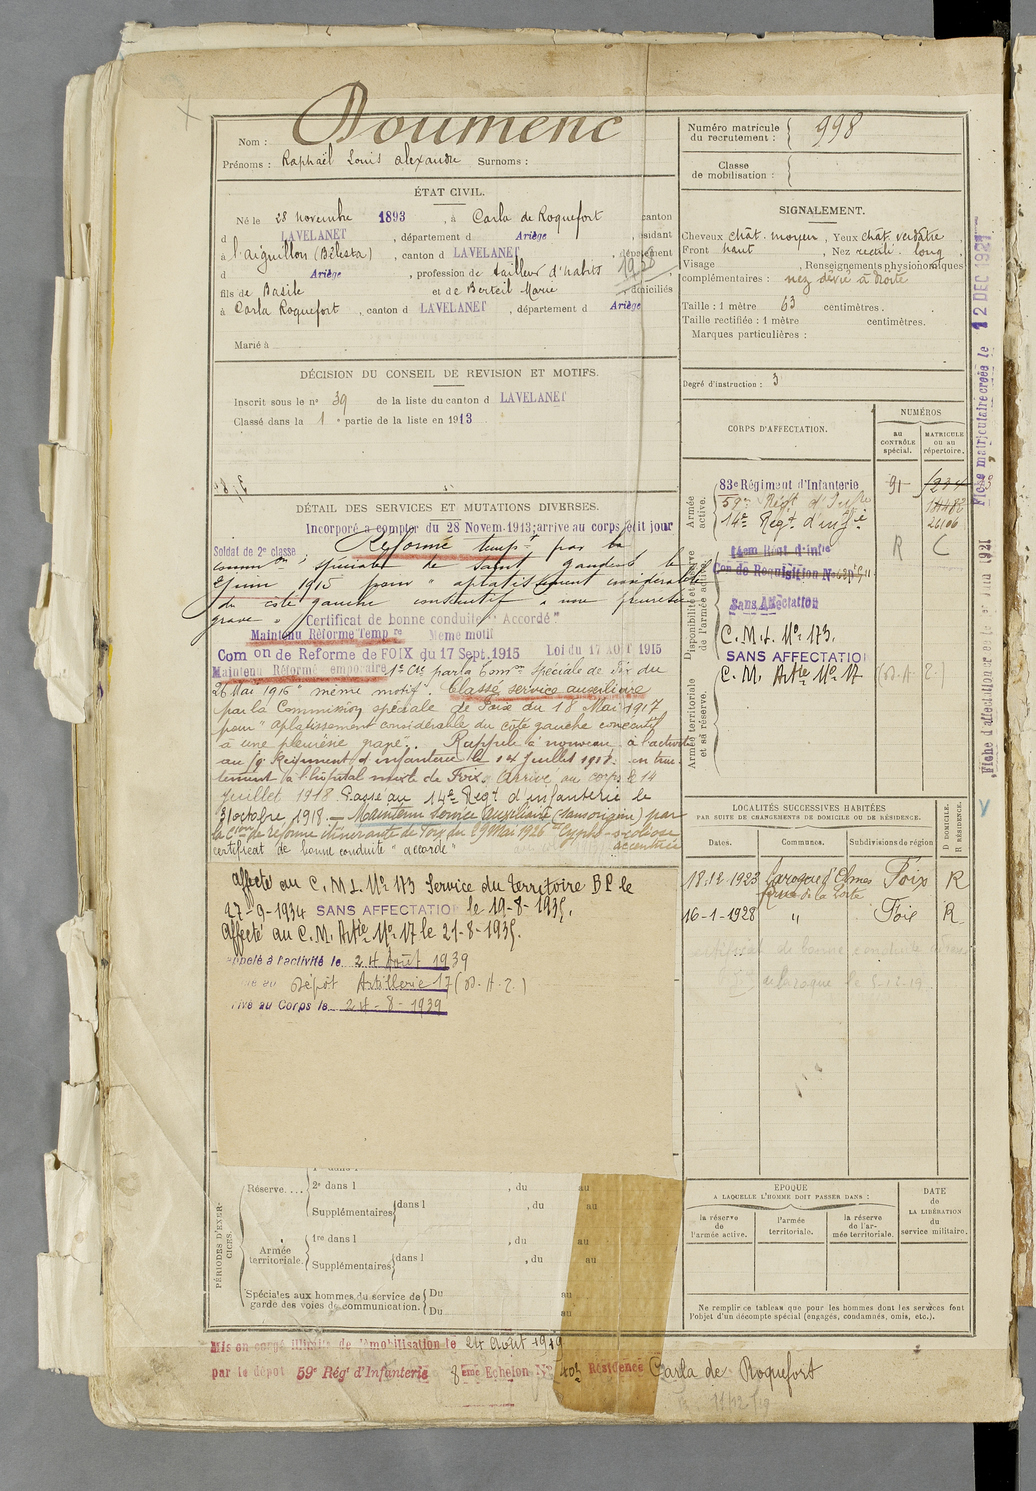 Nom : Doumenc
Prénoms : Raphaël Louis Alexandre Surnoms :
ÉTAT CIVIL.
Né le 28 novembre 1893, à Carla de Roquefort canton
d LAVELANET, département d Ariège, résidant
à l'aiguillon (Bélesta), canton d LAVELANET, département
d Ariège, profession de tailleur d'habits
fils de Basile et de Berteil Marie domiciliés
à Carla Roquefort, canton d LAVELANET, département d Ariège
Marié à
DÉCISION DU CONSEIL DE REVISION ET MOTIFS.
Inscrit sous le n° 39 de la liste du canton d LAVELANET
Classé dans la 1e partie de la liste en 1913
DÉTAIL DES SERVICES ET MUTATIONS DIVERSES.
Incorporé a compter du 28 Novem. 1913; arrive au corps ledit jour
Soldat de 2e classe, Réformé tempre par la
common spéciale de Saint Gaudens le
2 juin 1915 pour "aplatissement considérable
du côté gauche consécutif à une pleurésie
grave" "Certificat de bonne conduite" Accordé"
Maintenu Réforme Tempre Meme motif
Comon de Reforme de FOIX du 17 Sept. 1915 Loi du 17 AOUT 1915
Maintenu Réformé temporaire 1e Cie par la Comon spéciale de Foix du
26 Mai 1916 "même motif". Classé service auxiliaire
par la Commission spéciale de Foix du 18 Mai 1917
pour "aplatissement considérable du côté gauche consécutif
à une pleurésie grave". Rappelé à nouveau à l'activité
au 9e Régiment d'infanterie le 14 Juillet 1918. en trai-
tement à l'hôpital mixte de Foix. Arrivé au corps le 14
Juillet 1918 Passé au 14e Régt d'infanterie le
31 octobre 1918. — Maintenu service auxiliaire (sans origine) par
la Con de réforme itinérante de Foix du 29 Mai 1926 Cypho-scoliose
accentuée
certificat de bonne conduite "accordé"
affecté au C.M.I. No 173 Service du territoire B P le
27-9-1934 SANS AFFECTATIO le 19-8-1935.
Affecté au C.M. Artie No 17 le 21-8-1935.
ppelé à l'activité le 24 Août 1939
au dépôt Artillerie 17
ivé au Corps le 24-8-1939
PÉRIODES D'EXERCICES.
Réserve....
2e dans l , du au
Supplémentaires dans l , du au
Armée territoriale.
1re dans l , du au
Supplémentaires dans l , du au
Spéciales aux hommes du service de garde des voies de communication. Du au
Du au
Mis en congé illimité de démobilisation le 24 Août 1919
par le dépôt 59e Rég' d'Infanterie 8ème Echelon No Résidence Carla de Roquefort
Numéro matricule du recrutement : 998
Classe de mobilisation :
SIGNALEMENT.
Cheveux chât. moyen, Yeux chât. verdâtre,
Front haut, Nez rectili. long,
Visage , Renseignements physionomiques
complémentaires : nez dévié à droite
Taille : 1 mètre 63 centimètres.
Taille rectifiée : 1 mètre centimètres.
Marques particulières :
Degré d'instruction : 3
CORPS D'AFFECTATION.
NUMÉROS
au CONTRÔLE spécial.
MATRICULE ou au répertoire.
Armée active.
83e Régiment d'Infanterie 91
59e Régt d'Infie
14e Régt d'infie
Disponibilité et réserve de l'armée active
14em Régt d'infie R C
Con de Requisition No
Sans Affectation
C.M.I. No 173.
SANS AFFECTATIO
Armée territoriale et sa réserve.
C.M. Artie No 17
LOCALITÉS SUCCESSIVES HABITÉES
PAR SUITE DE CHANGEMENTS DE DOMICILE OU DE RÉSIDENCE.
Dates. Communes. Subdivisions de région D DOMICILE. R RÉSIDENCE.
18.12-1923 Laroque d'Olmes Foix R
16-1-1928 " Foix R
EPOQUE
A LAQUELLE L'HOMME DOIT PASSER DANS :
la réserve de l'armée active.
l'armée territoriale.
la réserve de l'armée territoriale.
DATE de LA LIBÉRATION du service militaire.
Ne remplir ce tableau que pour les hommes dont les services font
l'objet d'un décompte spécial (engagés, condamnés, omis, etc.).
Fiche matriculaire créée le 12 DEC 1921